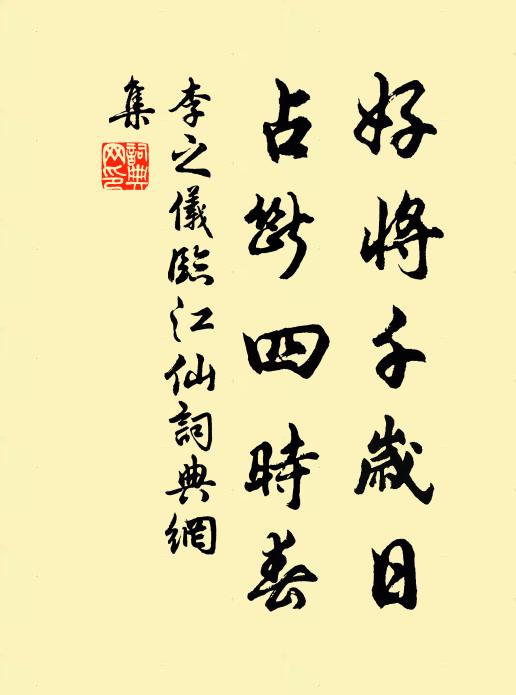 好將千歲日
占斷四時春
李之儀臨江仙詞典網
集
詞典網印